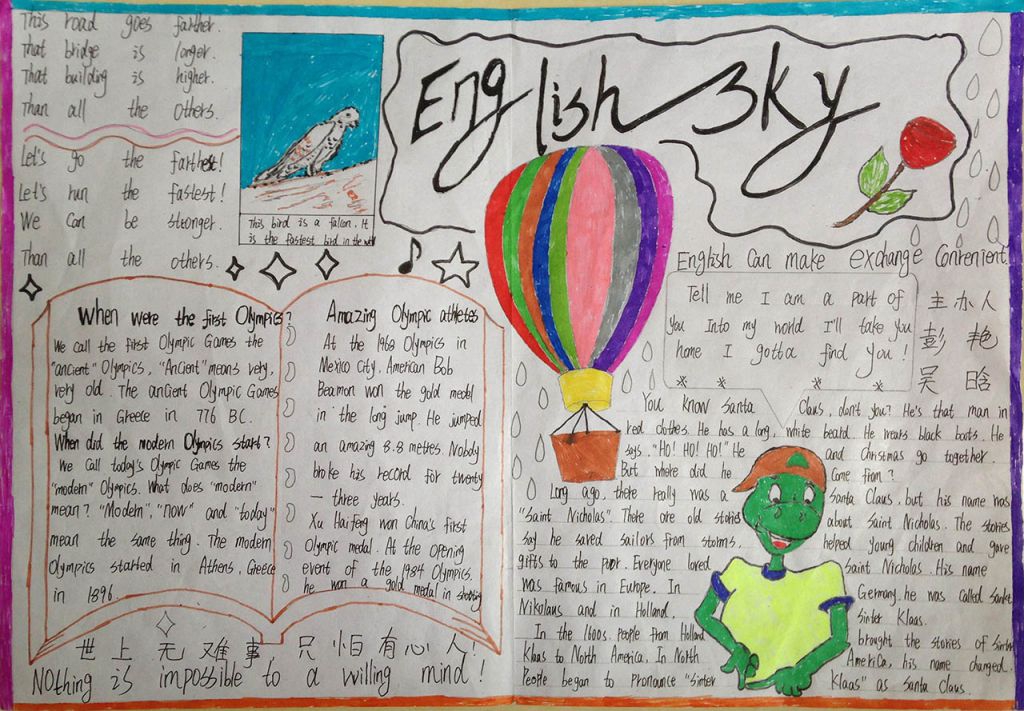 This road goes farther.
That bridge is longer.
That building is higher.
Than all the others.
Let's go the farthest!
Let's run the fastest!
We can be stronger.
Than all the others.
This bird is a falcon. It
is the fastest bird in the world
English Sky
English Can make exchange Convenient
Tell me I am a part of
you Into my world I'll take you
home I gotta find you!
主办人
彭艳
吴晗
When were the first Olympics?
We call the first Olympic Games the
"ancient" Olympics, "Ancient" means very,
very old. The ancient Olympic Games
began in Greece in 776 BC.
When did the modern Olympics start?
We Call today's Olympic Games the
"modern" Olympics. What does "modern"
mean? "Modern", "now" and "today"
mean the same thing. The modern
Olympics started in Athens, Greece
in 1896.
Amazing Olympic athletes
At the 1968 Olympics in
Mexico City, American Bob
Beamon won the gold medal
in the long jump. He jumped
an amazing 8.8 metres. Nobody
broke his record for twenty
— three years.
Xu Haifeng won China's first
Olympic medal. At the opening
event of the 1984 Olympics.
he won a gold medal in shooting
世上无难事只怕有心人!
Nothing is impossible to a willing mind!
You know Santa Claus, don't you? He's that man in
red clothes. He has a long, white beard. He wears black boots. He
says. "Ho! Ho! Ho!" He and Christmas go together.
But where did he Come from?
Long ago, there really was a Santa Claus, but his name was
"Saint Nicholas". There are old stories about Saint Nicholas. The stories
say he saved sailors from storms. helped young children and gave
gifts to the poor. Everyone loved Saint Nicholas. His name
was famous in Europe. In Germany, he was called Sankt
Nikolaus and in Holland, Sinter Klaas.
In the 1600s. people from Holland brought the stories of Sinter
Klaas to North America. In North America, his name changed.
People began to pronounce "Sinter Klaas" as Santa Claus.